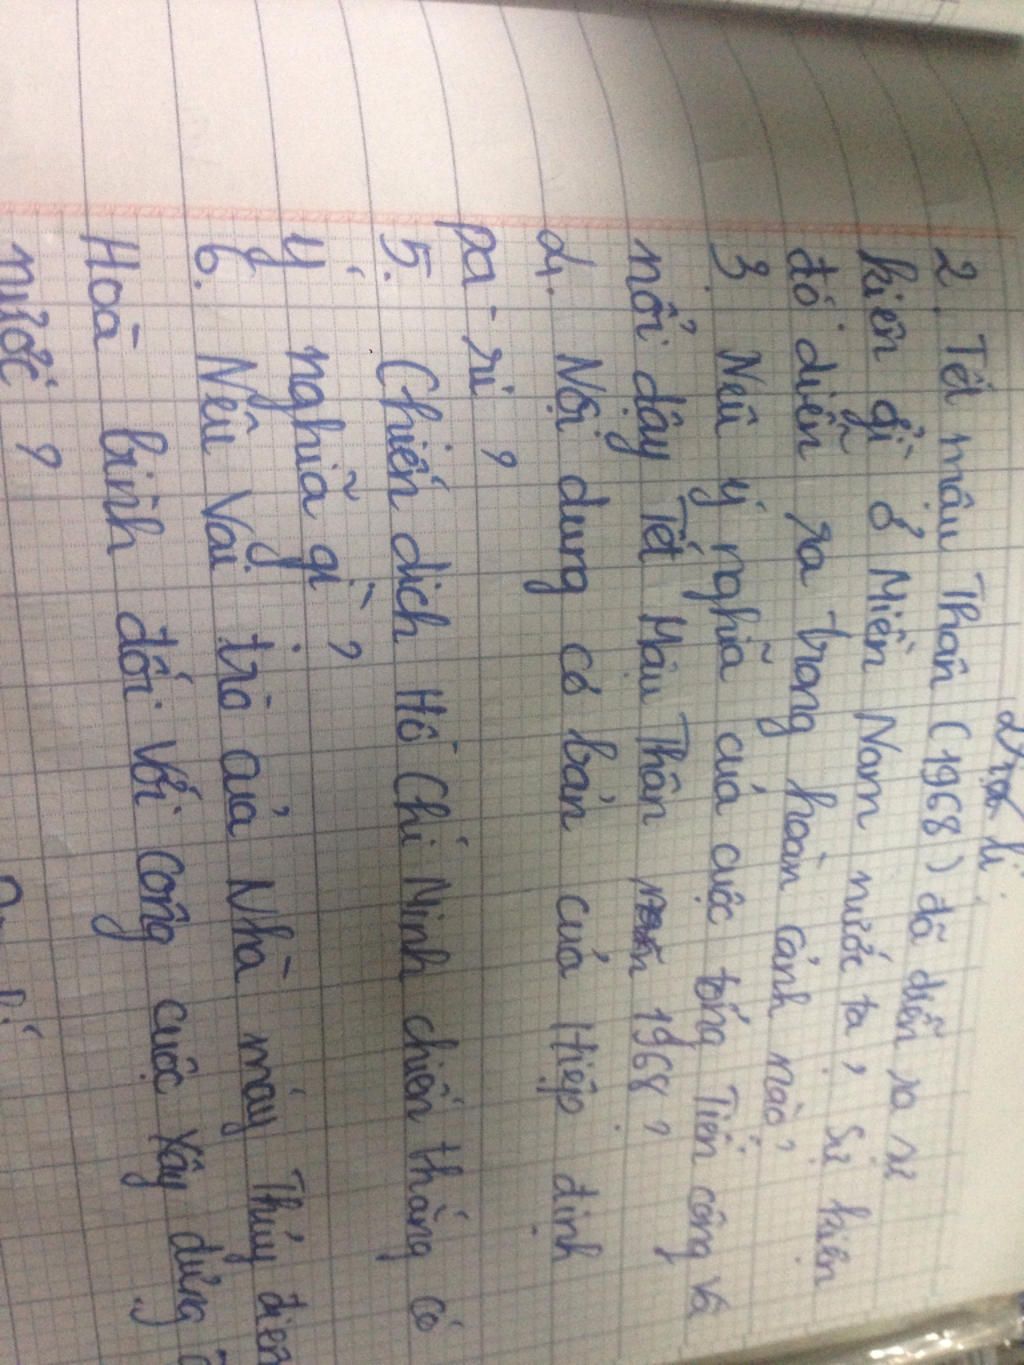 2. Tết mậu Thân (1968) đã diễn ra sự
kiện gì ở Miền Nam nước ta, Sự kiện
đó diễn ra trong hoàn cảnh nào?
3. Nêu ý nghĩa của cuộc tổng Tiến công và
nổi dậy Tết Mậu Thân 1968?
4. Nội dung cơ bản của Hiệp định
pa-ri?
5. Chiến dịch Hồ Chí Minh chiến thắng có
ý nghĩa gì?
6. Nêu Vai trò của Nhà máy Thủy điện
Hoà bình đối với công cuộc xây dựng
nước?